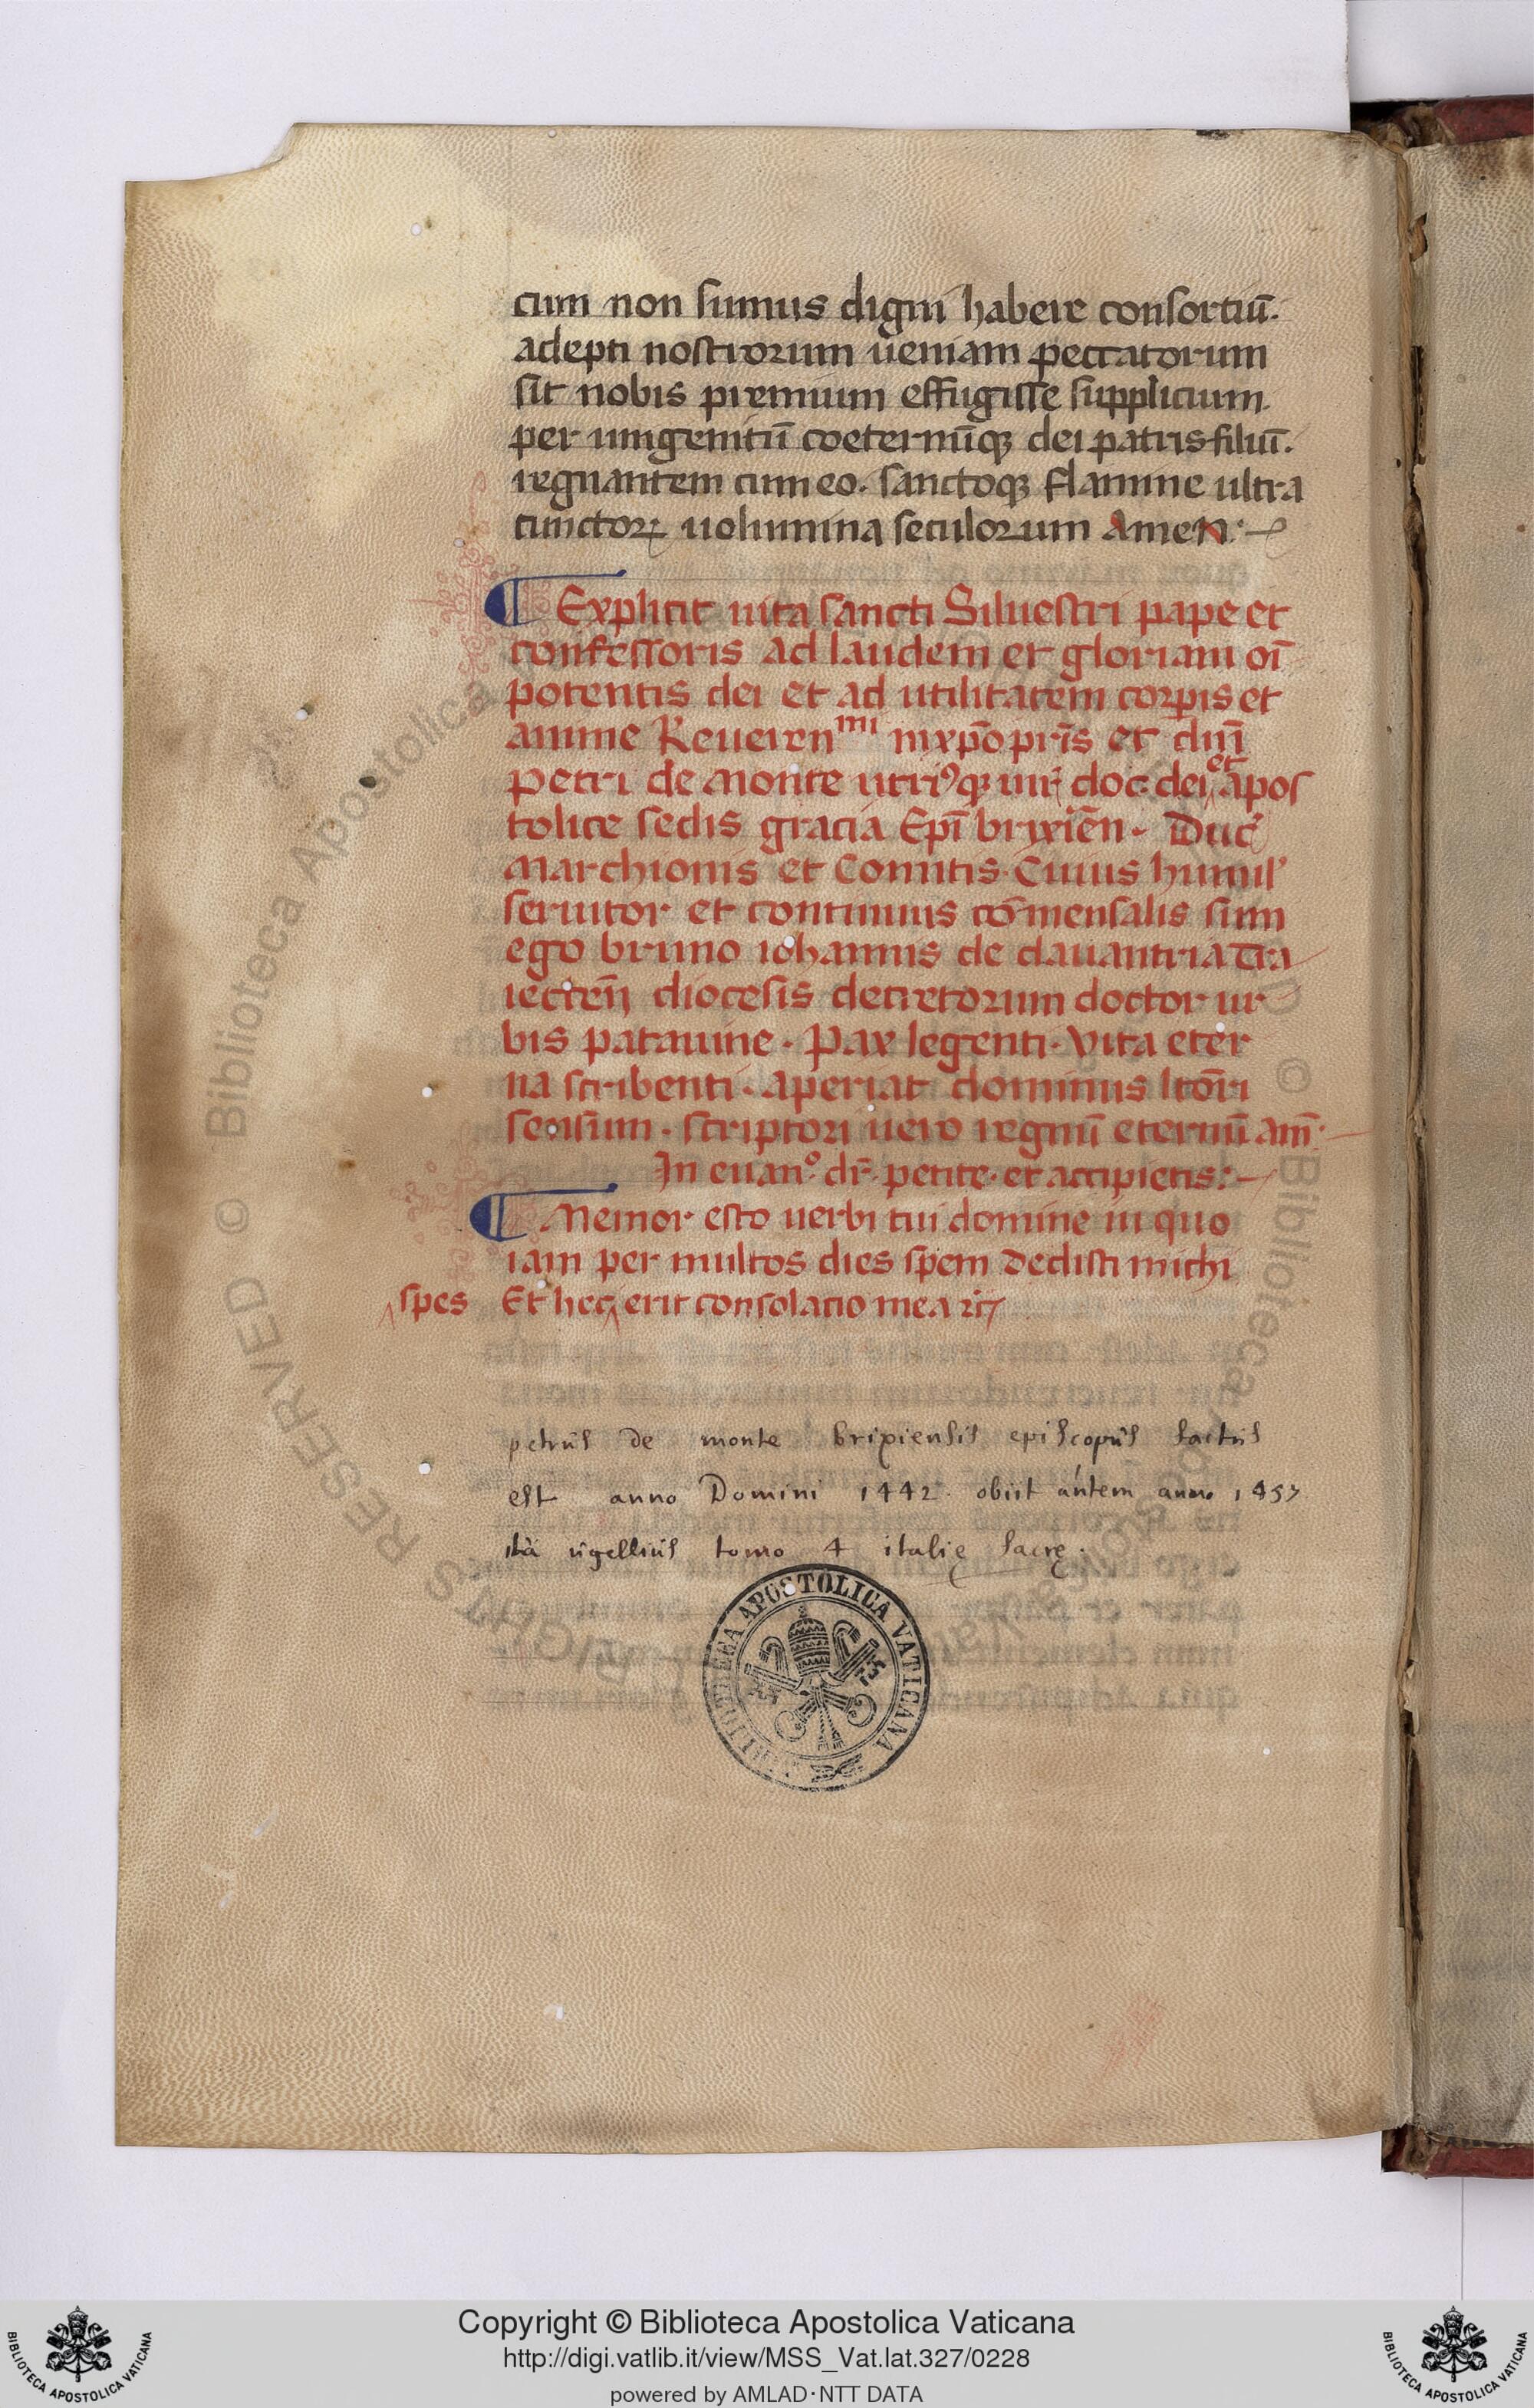 cum non sumus digni habere consortiū.
adepti nostrorum ueniam peccatorum
sit nobis premium effugisse supplicium.
per unigenitū coeternūqꝫ dei patris filiū.
regnantem cum eo. sanctoqꝫ flamine ultra
cunctoꝝ uolumina seculorum Amen:
Explicit uita sancti Siluestri pape et
confessoris ad laudem et gloriam oī
potentis dei et ad utilitatem corpis et
anime Reueren^mi in xp̄o pr̄is et dn̄i
petri de Monte utriꝰqꝫ iur̄ doc. dei et apos
tolice sedis gracia Ep̄i brixiēn. Duc̄
Marchionis et Comitis. Cuius humil'
seruitor et continuus cō mensalis sum
ego bruno iohannis de dauantria Tra
iectēn diocesis decretorum doctor ur
bis patauine. Pax legenti. Vita eter
na scribenti. aperiat dominus lc̄ori
sensum. scriptori uero regnū eternū am̄.
In euan.º dr̄. petite. et accipietis:
Memor esto uerbi tui domine in quo
iam per multos dies spem dedisti michi
spes Et hec erit consolacio mea
petrus de monte brixiensis episcopus factus
est anno Domini 1442. obiit autem anno 1457
ità ugellius tomo 4 italię sacrę.
BIBLIOTHECA APOSTOLICA VATICANA
© Biblioteca Apostolica Vaticana
RIGHTS RESERVED
Copyright © Biblioteca Apostolica Vaticana
http://digi.vatlib.it/view/MSS_Vat.lat.327/0228
powered by AMLAD·NTT DATA
BIBLIOTECA APOSTOLICA VATICANA
BIBLIOTECA APOSTOLICA VATICANA